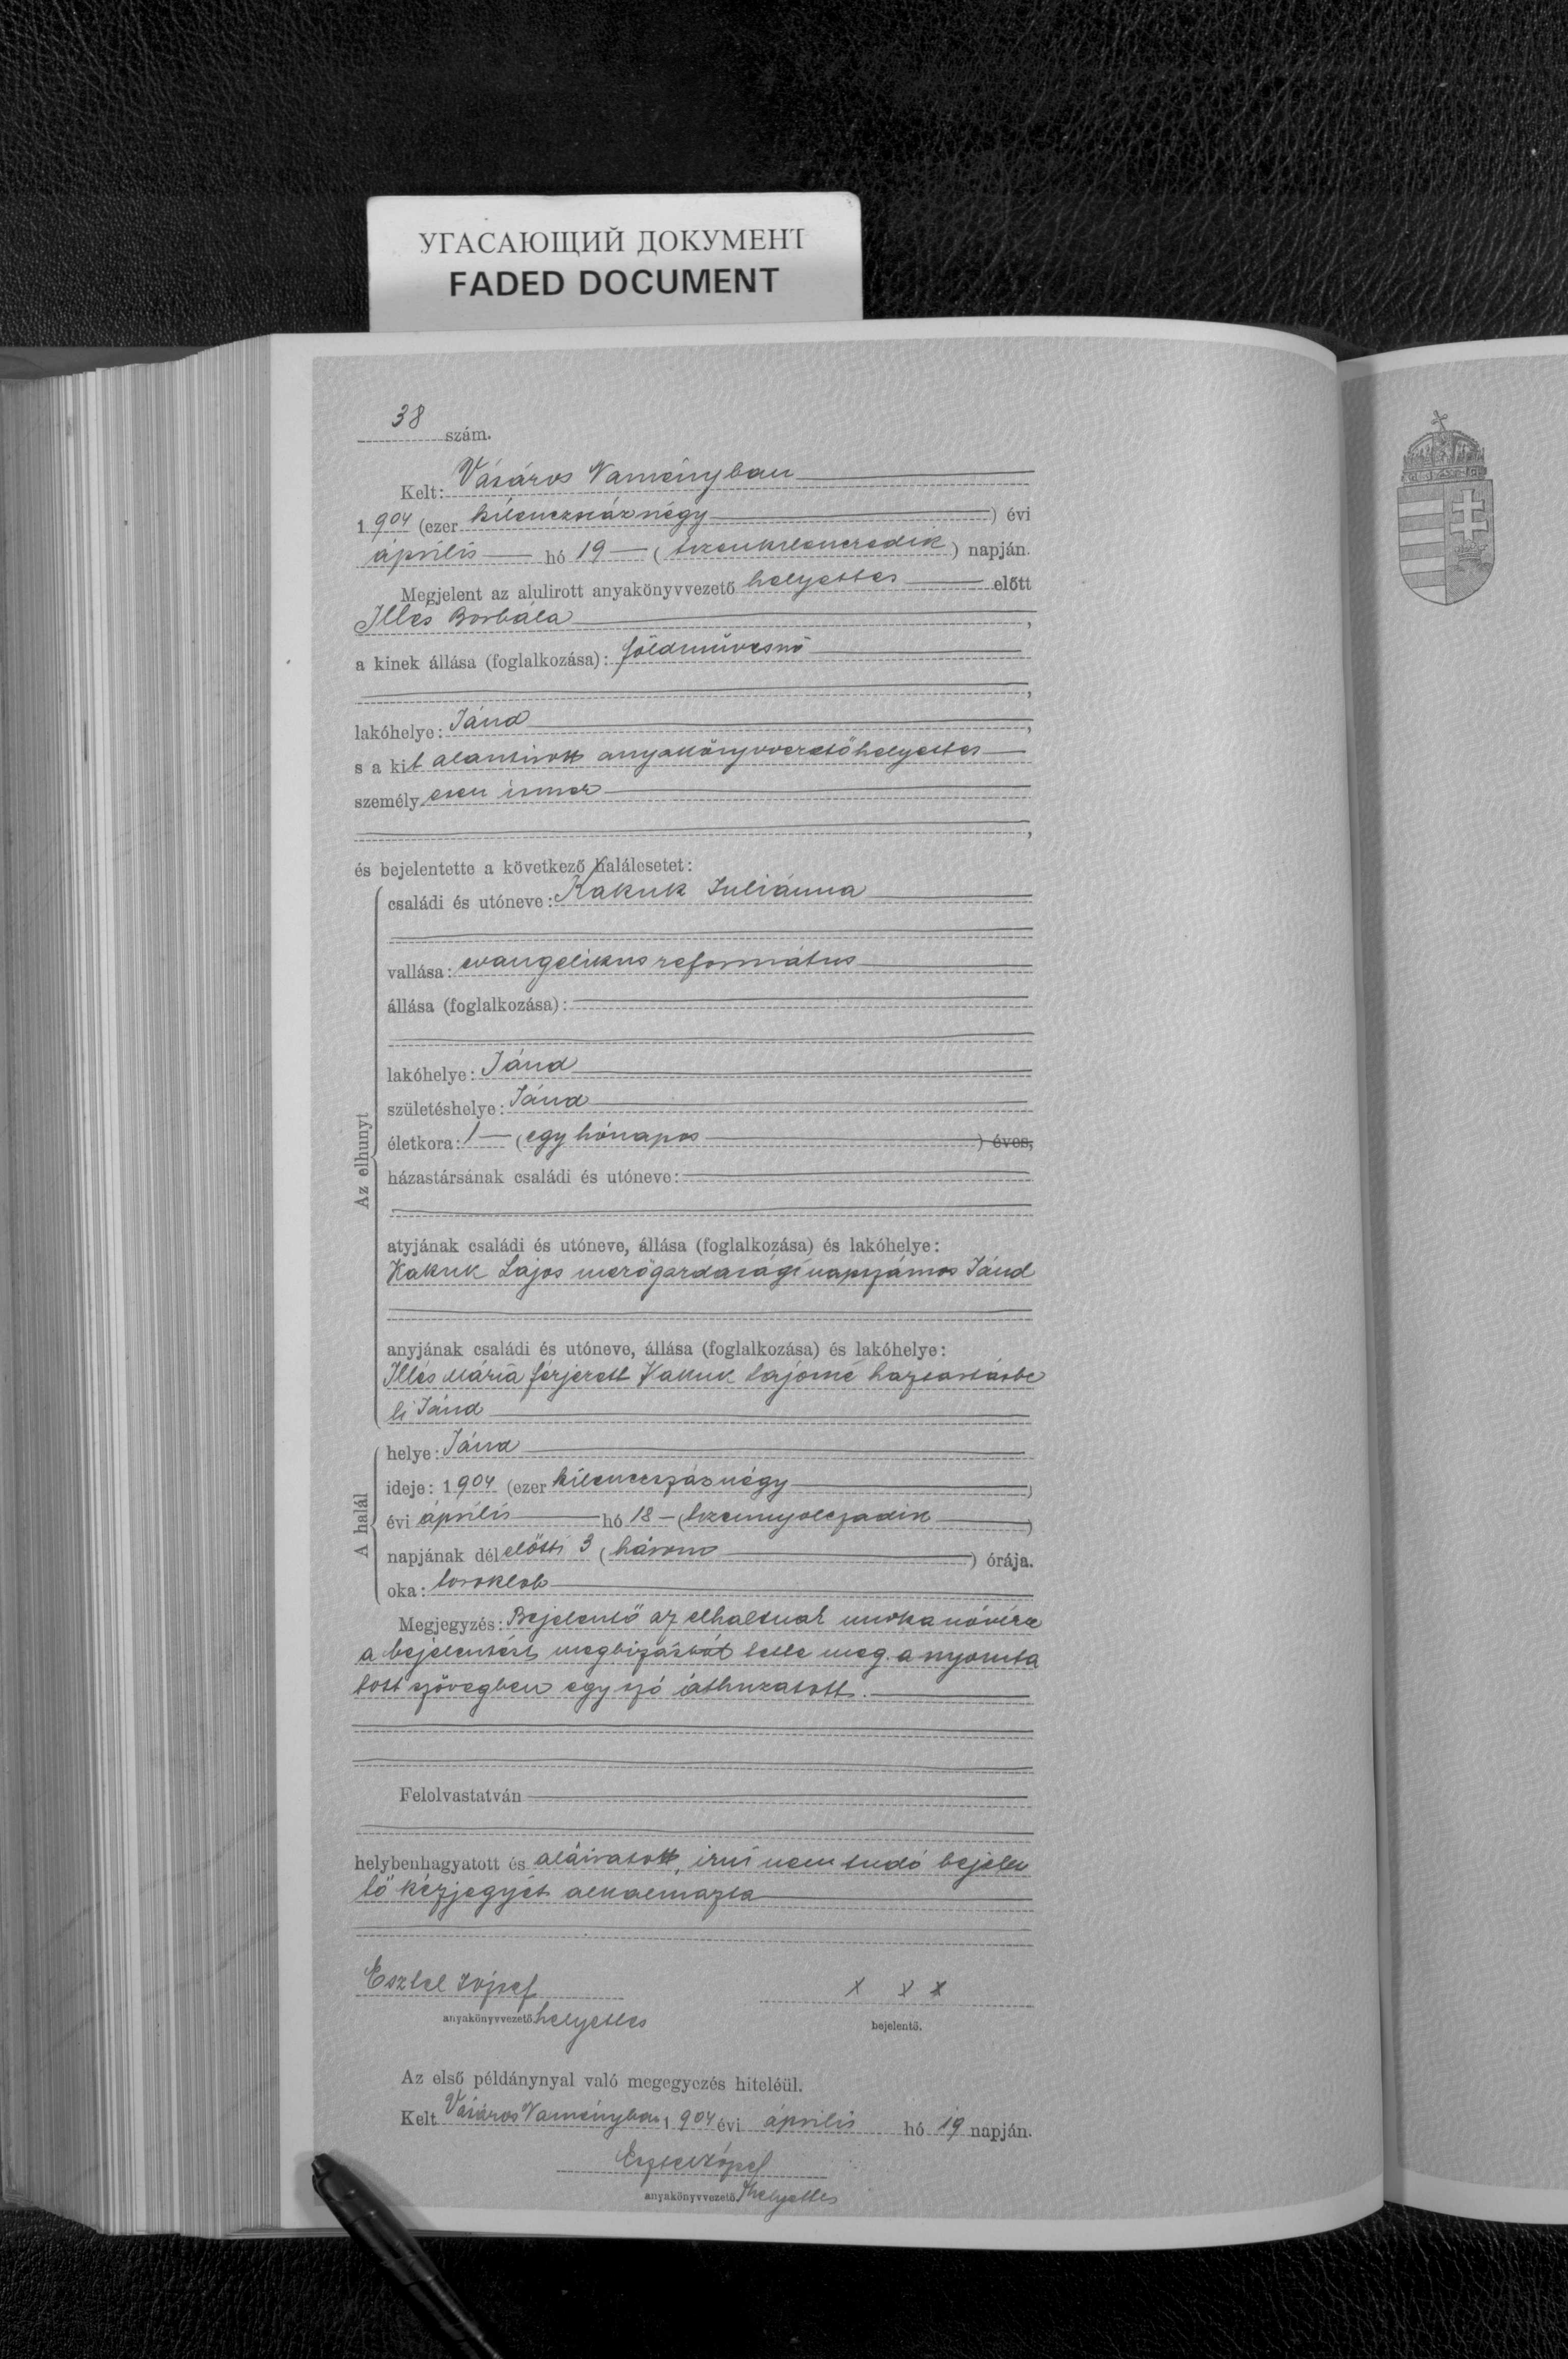 УГАСАЮЩИЙ ДОКУМЕНТ
FADED DOCUMENT
38 szám.
Kelt: Vásáros Naményban
1904 (ezer kilenczszáznégy) évi
április hó 19 (tizenkilenczedik) napján.
Megjelent az alulirott anyakönyvvezető helyettes előtt
Illés Borbála,
a kinek állása (foglalkozása): földművesnő
,
lakóhelye: Jánd,
s a kit alantirott anyakönyvvezetőhelyettes
személyesen ismer
,
és bejelentette a következő halálesetet:
Az elhunyt
családi és utóneve: Kakuk Juliánna
vallása: evangelikus református
állása (foglalkozása):
lakóhelye: Jánd
születéshelye: Jánd
életkora: 1 (egy hónapos) éves,
házastársának családi és utóneve:
atyjának családi és utóneve, állása (foglalkozása) és lakóhelye:
Kakuk Lajos mezőgazdasági napszámos Jánd
anyjának családi és utóneve, állása (foglalkozása) és lakóhelye:
Illés Mária férjezett Kakuk Lajosné háztartásbe
li Jánd
A halál
helye: Jánd
ideje: 1904 (ezer kilenczszáznégy)
évi április hó 18 (tizennyolczadik)
napjának délelőtti 3 (három) órája.
oka: toroklob
Megjegyzés: Bejelentő az elhaltnak unokanővére
a bejelentést megbizásból tette meg. a nyomta
tott szövegben egy szó áthuzatott.
Felolvastatván
helybenhagyatott és aláiratott, irni nem tudó bejelen
tő kézjegyét alkalmazta
Esztel József x x x
anyakönyvvezető helyettes bejelentő.
Az első példánynyal való megegyezés hiteléül.
Kelt Vásáros Naményban 1904 évi április hó 19 napján.
Esztel József
anyakönyvvezető helyettes